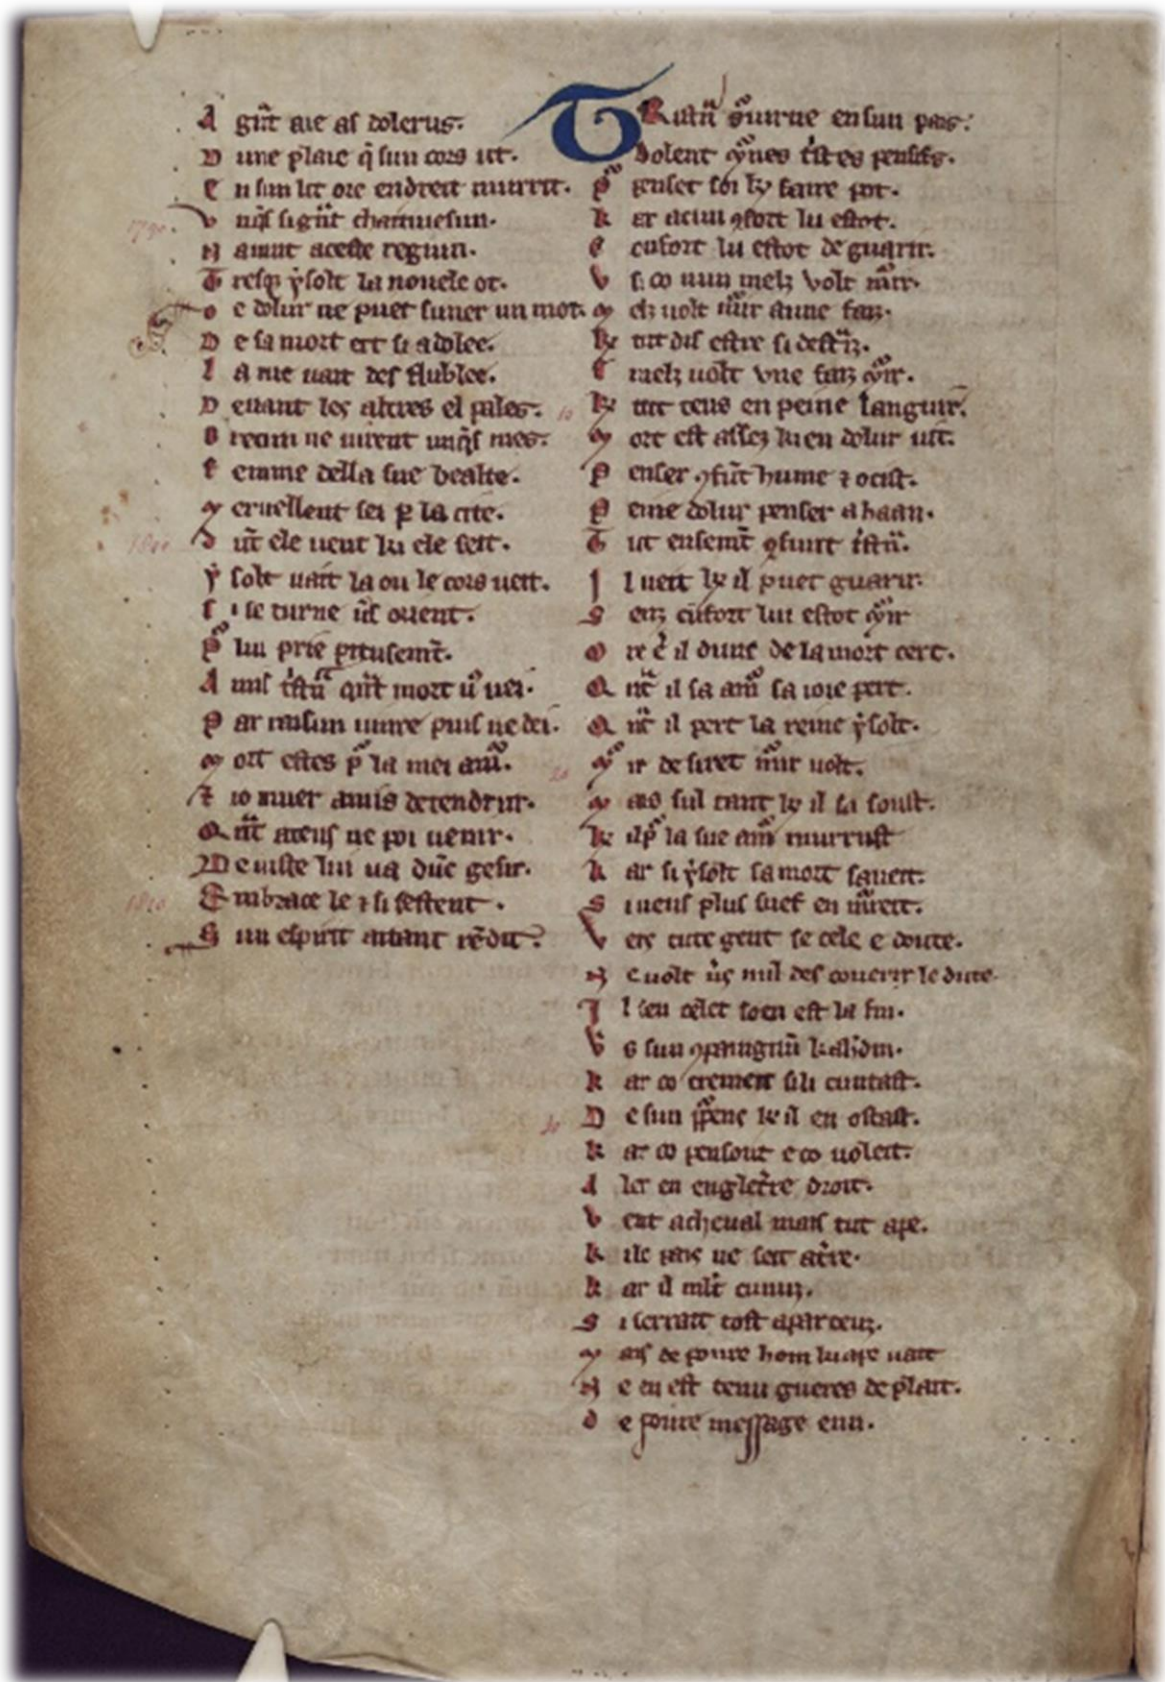 A grãt aie as dolerus.
D une plaie q̃ sun cors ut.
E n sun lit ore endreit murut.
U nq̃s si grãt chaitivesun.
N avint a ceste regiun.
T resq̃ ysolt la novele ot.
D e dolur ne puet suner un mot.
D e sa mort ert si adolee.
L a rue vait desfublee.
D evant les altres el paleis.
B retun ne virent unq̃s mes.
F emme della sue bealte.
M erveillent sei p la cite.
D ũt ele vent ki ele seit.
Y solt vait la ou le cors veit.
S i se turne ṽs orient.
P͛ lui prie pitusemt̃.
A mis tͥstrã qãt mort vͦ vei.
P ar raisun vivre puis ne dei.
M ort estes p͛ la mei amͦ.
⁊ jo muer amis de tendrur.
Q ãt a tens ne poi venir.
D e juste lui va dũc gesir.
E mbrace le ⁊ si sestent.
S un espirit aitant rẽdit.
1790.
1800
1810
T Ristrã sujurne en sun pais.
Dolent mͣnes tͥstes pensifs.
P͛ penset soi ke faire pot.
K ar acun ꝯfort lu estot.
C ũfort lu estot de guarir.
U s i co nun melz volt mͧrir.
M elz volt mͧrir a une faiz.
K e tut dis estre si destͣiz.
E melz volt une faiz mͧrir.
K e tut tens en peine languir.
M ort est assez k en dolur vit.
P enser ꝯfũt hume ⁊ ocist.
P eine dolur penser ahaan.
T ut ensemt̃ ꝯfunt tͥstrã.
I l veit ke il puet guarir.
S enz cũfort lui estot mͧrir
O re ẽ il dunc de la mort cert.
Q ãt il sa amͦ sa joie pert.
Q ãt il pert la reine ysolt.
M urir desiret mͧrir volt.
M ais sul tant ke il la soust.
K il p͛ la sue amͦ murrust
K ar si ysolt sa mort saveit.
S iveus plus suef en mͧreit.
V ers tute gent se cele e dute.
N e volt ṽs nul descoverir le dute
I l sen celet co en est la fin.
V͛ s sun ꝯpaignũ kaherdin.
K ar co cremeit si li cuntast.
D e sun p͛pens ke il en ostast.
K ar co pensout e co voleit.
A ler en engletͤre droit.
N ent a cheval mais tut a pe.
K il el pais ne seit atͤre.
K ar il ert mlt cunuz.
S i serrait tost aparceuz.
M ais de povre hom k a pe vait
N e en est tenu gueres de plait.
D e povre message e nu.
10
20
30